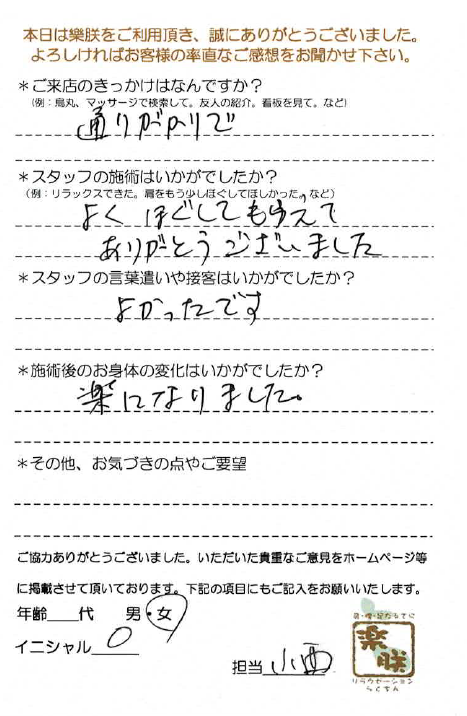 本日は樂朕をご利用頂き、誠にありがとうございました。
よろしければお客様の率直なご感想をお聞かせ下さい。
＊ご来店のきっかけはなんですか？
（例：烏丸、マッサージで検索して。友人の紹介。看板を見て。など）
通りがかりで
＊スタッフの施術はいかがでしたか？
（例：リラックスできた。肩をもう少しほぐしてほしかった。など）
よくほぐしてもらえて
ありがとうございました
＊スタッフの言葉遣いや接客はいかがでしたか？
よかったです
＊施術後のお身体の変化はいかがでしたか？
楽になりました。
＊その他、お気づきの点やご要望
ご協力ありがとうございました。いただいた貴重なご意見をホームページ等
に掲載させて頂いております。下記の項目にもご記入をお願いいたします。
年齢＿＿代　男・女
イニシャル O
担当 小西
楽朕
リラクゼーション
らくちん